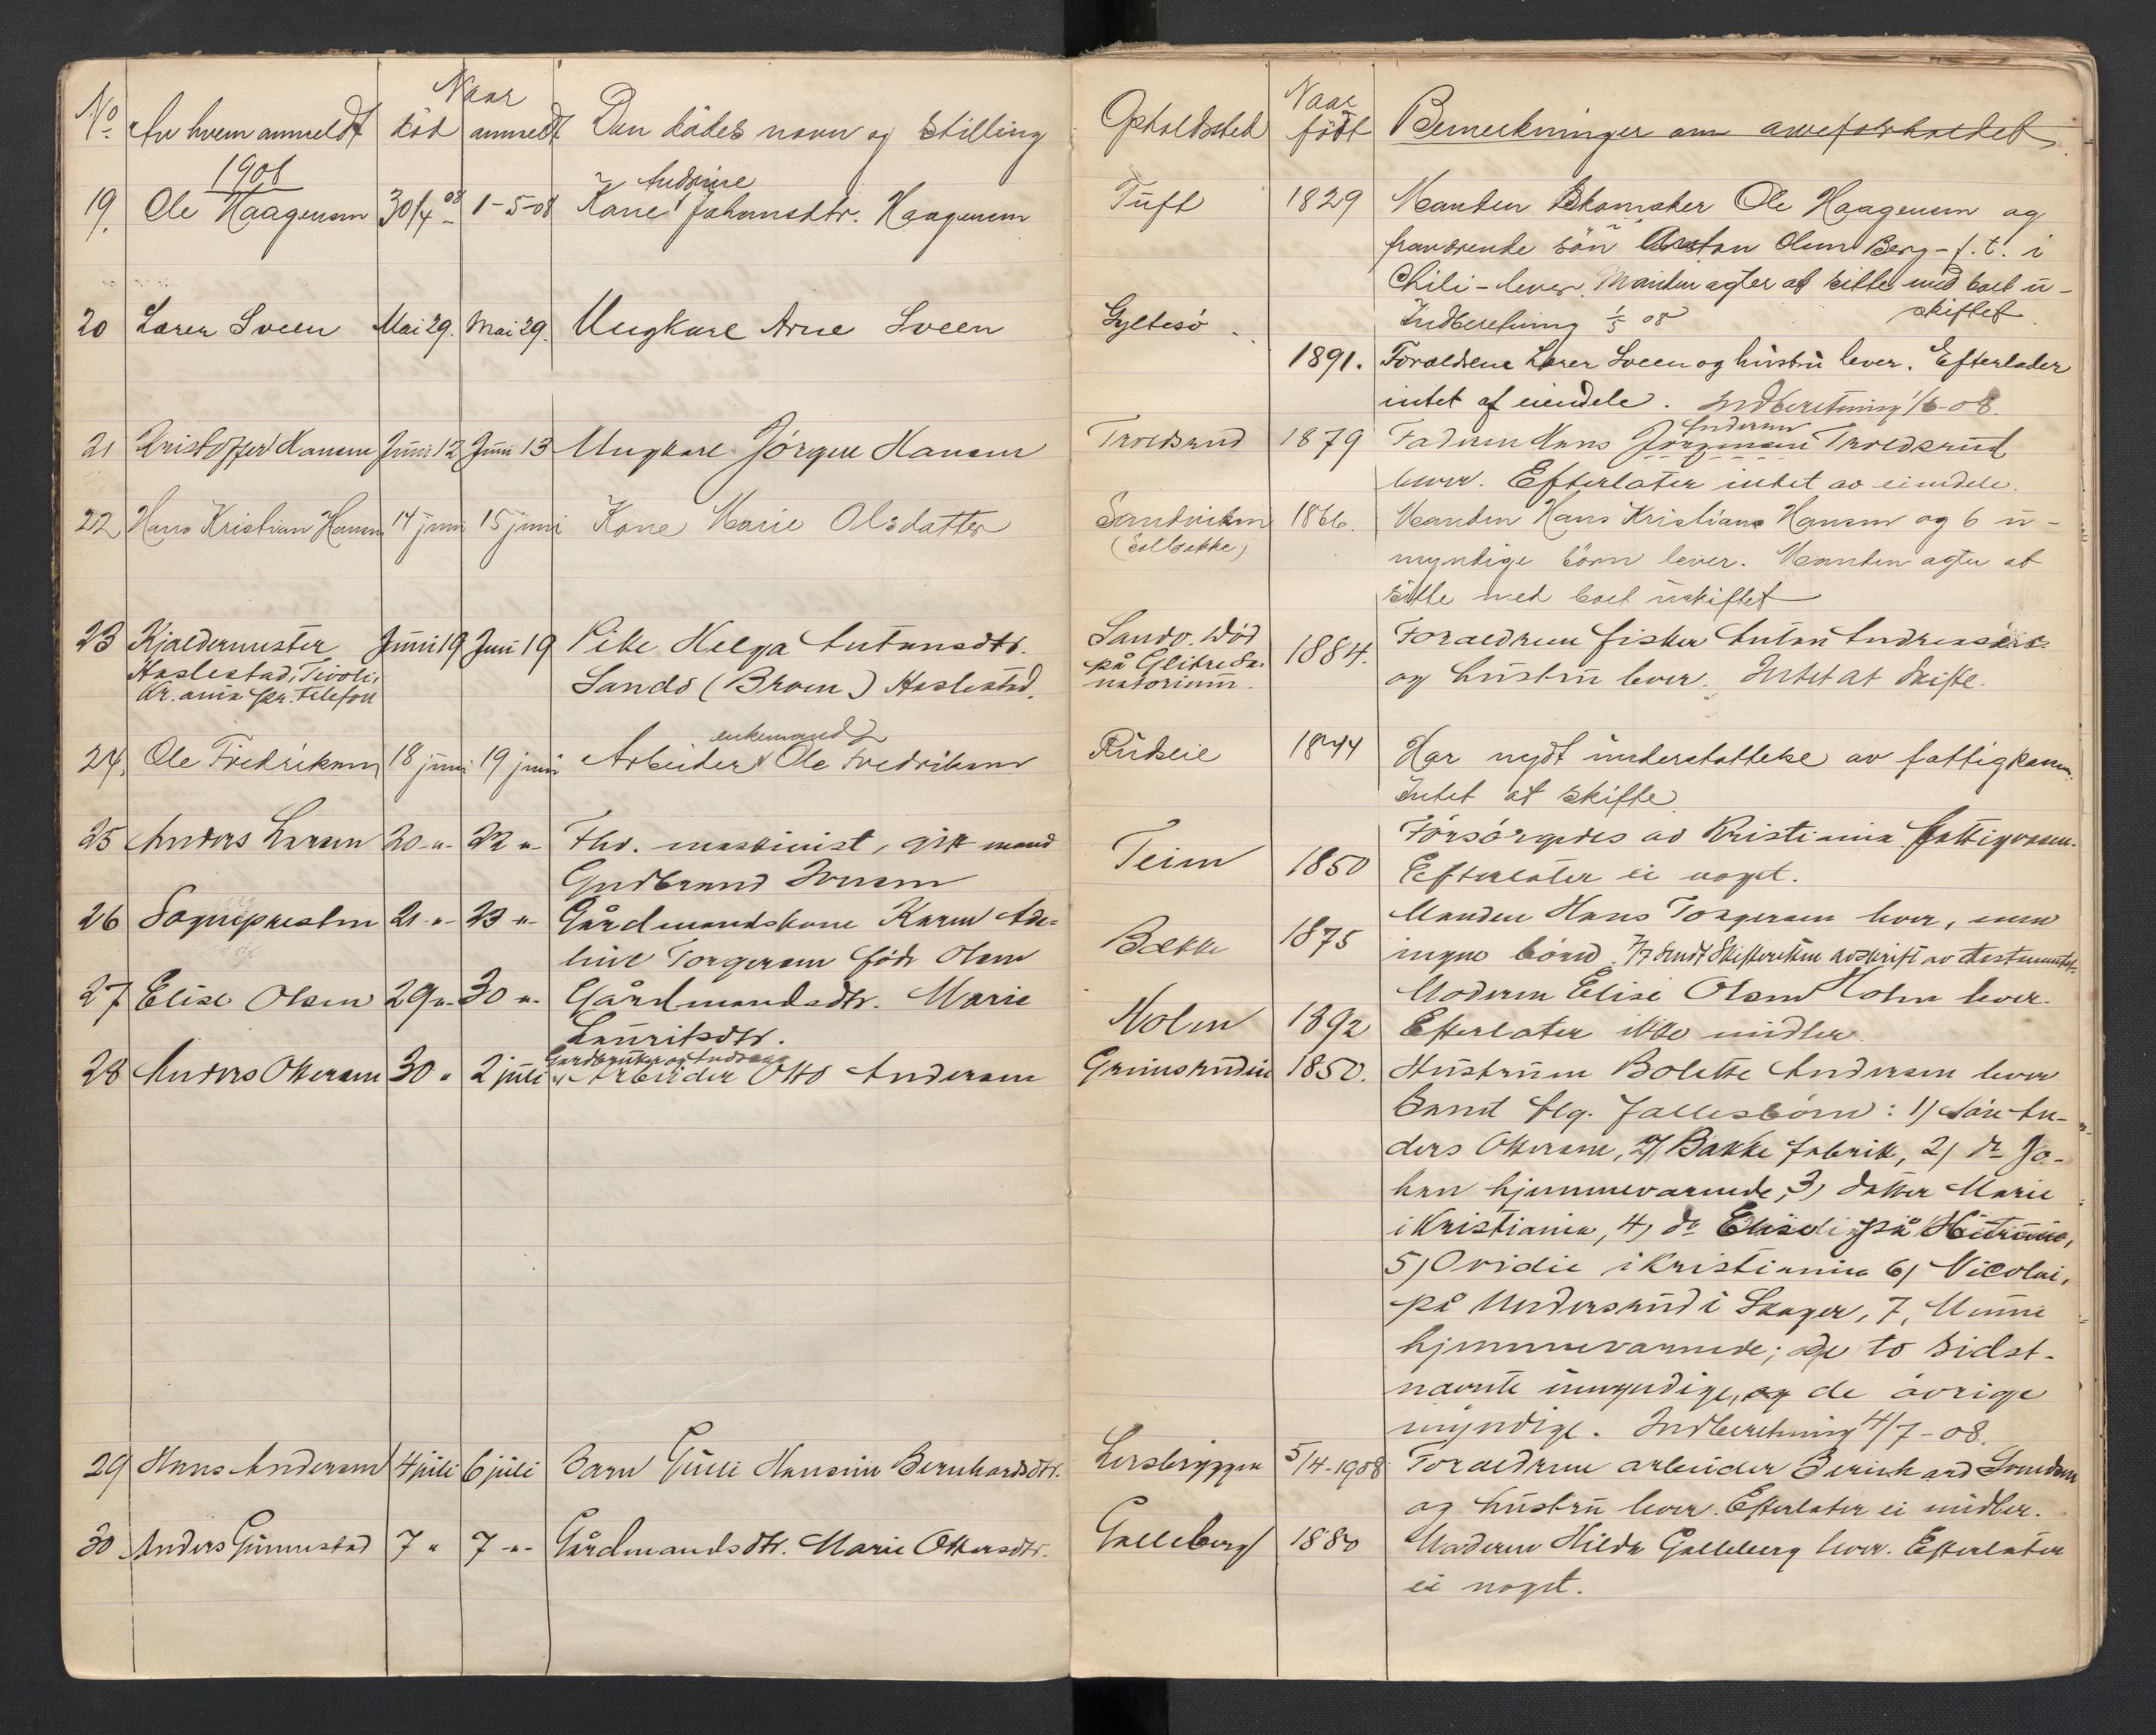 No Av hvem anmeldt Naar død anmeldt Den dødes navn og stilling Opholdssted Naar født Bemerkninger om arveforholdet
1908
19. Ole Haagensen 30/4 08 1-5-08 Kone Andrine Johannesdtr. Haagensen Tuft 1829 Manden Skomaker Ole Haagensen og
fraværende søn Anton Olsen Berg - f. t. i
Chili - lever. Manden agter at sitte med boet u-
skiftet
Indberetning 1/5 08
20 Lærer Sveen Mai 29. Mai 29. Ungkarl Arne Sveen Gyltesø 1891. Forældrene Lærer Sveen og hustru lever. Efterlader
intet af eiendele. Indberetning 1/6-08.
21 Kristoffer Hansen Juni 12 Juni 13 Ungkarl Jörgen Hansen Troldsrud 1879 Faderen Hans Andersen Troldsrud
lever. Efterlater intet av eiendele.
22 Hans Kristian Hansen 14 juni 15 juni Kone Marie Olsdatter Sandviken (Solbakke) 1866. Manden Hans Kristian Hansen og 6 u-
myndige børn lever. Manden agter at
sitte med boet uskiftet
23 Kjeldermester Juni 19 Juni 19 Pike Helga Antonsdtr. Sandø. Död 1884. Forældrene fisker Anton Andreassen
Haslestad, Tivoli, Sandö (Broen) Haslestad. på Glitre Sa- og hustru lever. Intet at skifte.
Kr.ania pr. telefon natorium.
24. Ole Fredriksen 18 juni 19 juni Arbeider enkemand Ole Fredriksen Rudseie 1844 Har nydt understøttelse av fattigkassen.
Intet at skifte
25 Anders Larsen 20 -"- 22 "- Fhv. maskinist, gift mand Teien 1850 Försörgedes av Kristiania fattigvæsen.
Gudbrand Iversen Efterlater ei noget.
26 Sognepresten 21 -"- 23 -"- Gårdmandskone Karen Ade- Bække 1875 Manden Hans Torgersen lever, men
line Torgersen född Olsen ingen börn. 7/7 sendt Skifteretten avskrift av testamentet.
27 Elise Olsen 29 "- 30 -"- Gårdmandsdtr. Marie Holm 1892 Moderen Elise Olsen Holm lever.
Lauritsdtr. Efterlater ikke midler.
28 Anders Ottersen 30 " 2 juli Gardbruker og Arbeider Otto Andersen Grimsrudeie 1850. Hustruen Bolette Andersen lever
Samt flg. fællesbörn: 1) sön An-
ders Ottersen, Bakke fabrik, 2) do Jo-
han hjemmeværende, 3) datter Marie
i Kristiania, 4) do på
5) Ovidie i Kristiania 6) Nicolai,
på Undersrud i Skoger, 7, Minnie
hjemmeværende; de to sidst-
nævnte umyndige, de övrige
myndige. Indberetning 4/7-08.
29 Hans Andersen 4 juli 6 juli Barn Gulli Hansine Bernhardsdtr. Lersbryggen 5/4-1908 Forældrene arbeider Bernhard Svendsen
og hustru lever. Efterlater ei midler.
30 Anders Gunnestad 7 " 7 -"- Gårdmandsdtr. Marie Ottersdtr. Galleberg 1880 Moderen Hilda Galleberg lever. Efterlater
ei noget.